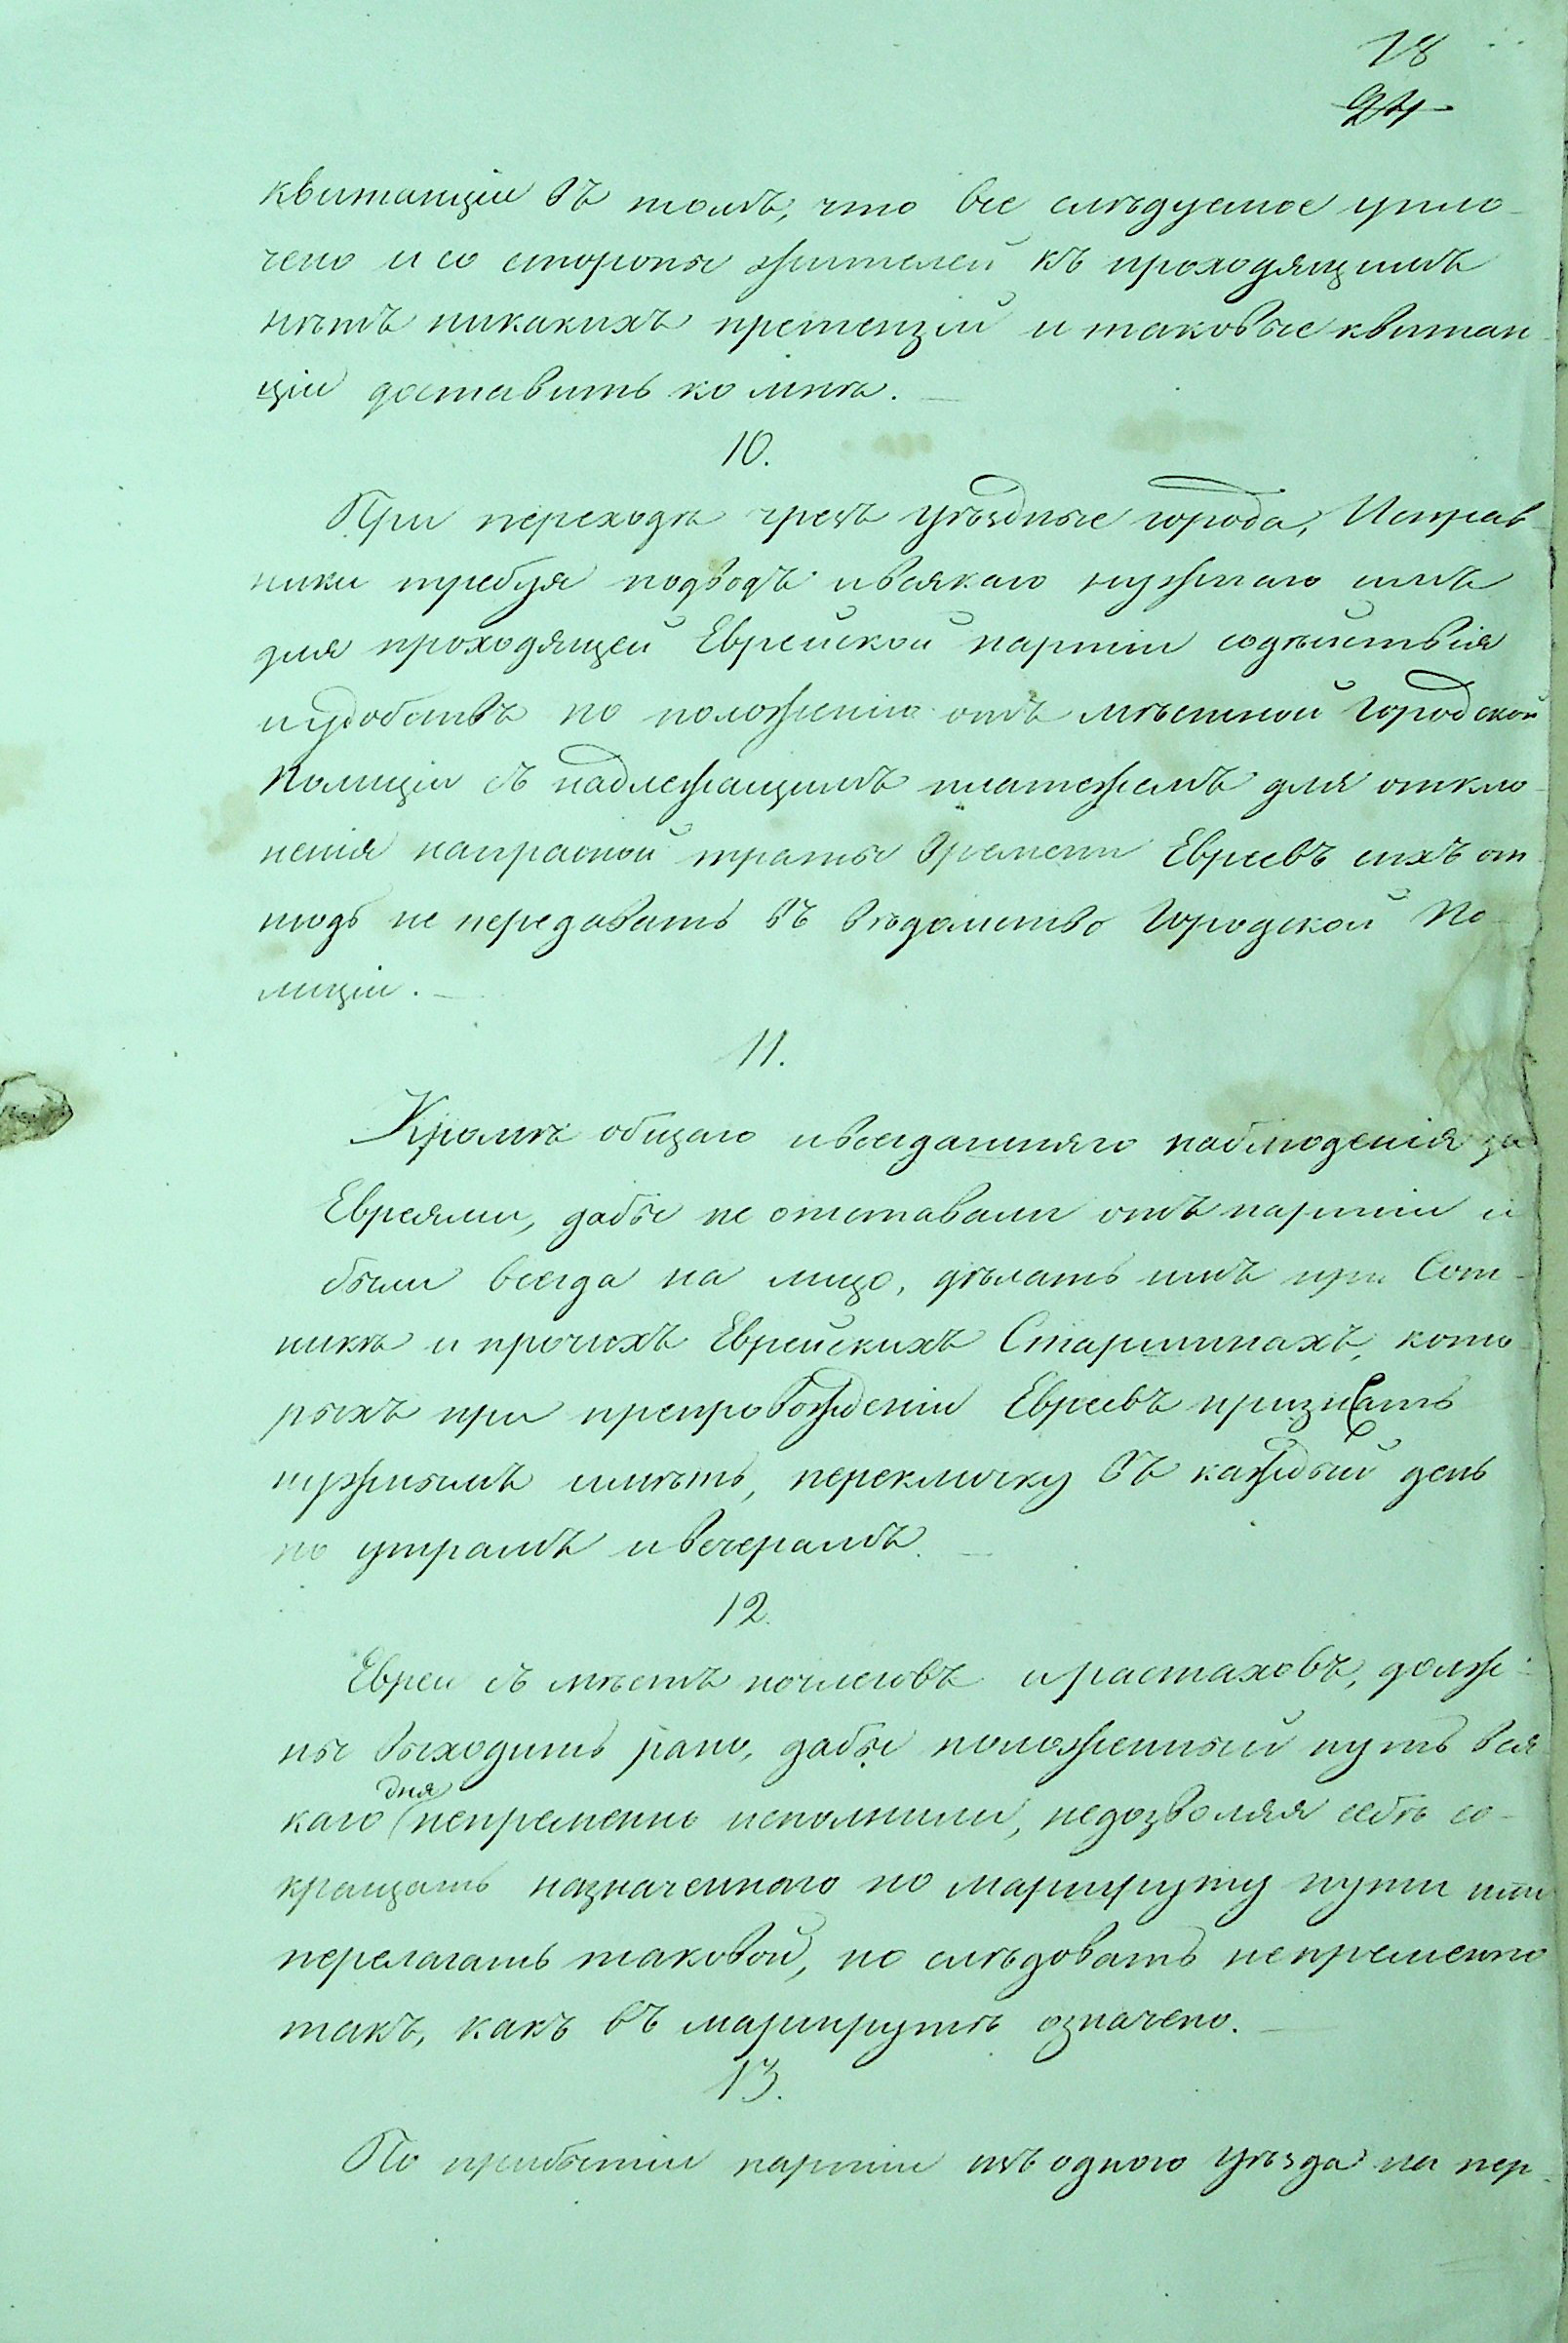 18
24
квитанціи въ томъ, что все слѣдуемое упло-
чено и со стороны жителей къ проходящимъ
нѣтъ никакихъ претензій и таковые квитан-
ціи доставить ко мнѣ. —
10.
При переходѣ чрезъ уѣздные города, Исправ-
ники требуя подводъ и всякаго нужнаго имъ
для проходящей Еврейской партіи содѣйствія
и удобствъ по положенію отъ мѣстной Городской
Полиціи съ надлежащимъ платежемъ для откло-
ненія напрасной траты времени Евреевъ сихъ от-
нюдь не передавать въ вѣдомство Городской По-
лиціи. —
11.
Кромѣ общаго и всегдашняго наблюденія за
Евреями, дабы не отставали отъ партіи и
были всегда на лицо, дѣлать имъ при Сот-
никѣ и прочихъ Еврейскихъ Старшинахъ, кото-
рыхъ при препровожденіи Евреевъ признать
нужнымъ имѣть, перекличку въ каждый день
по утрамъ и вечерамъ. —
12.
Евреи съ мѣстъ ночлеговъ и растаховъ, долж-
ны выходить рано, дабы положенный путь вся-
каго дня непременно исполнили, недозволяя себѣ со-
кращать назначеннаго по маршруту пути или
перелагать таковой, но слѣдовать непременно
такъ, какъ въ маршрутѣ означено. —
13.
По прибытіи партіи изъ одного уѣзда на пер-